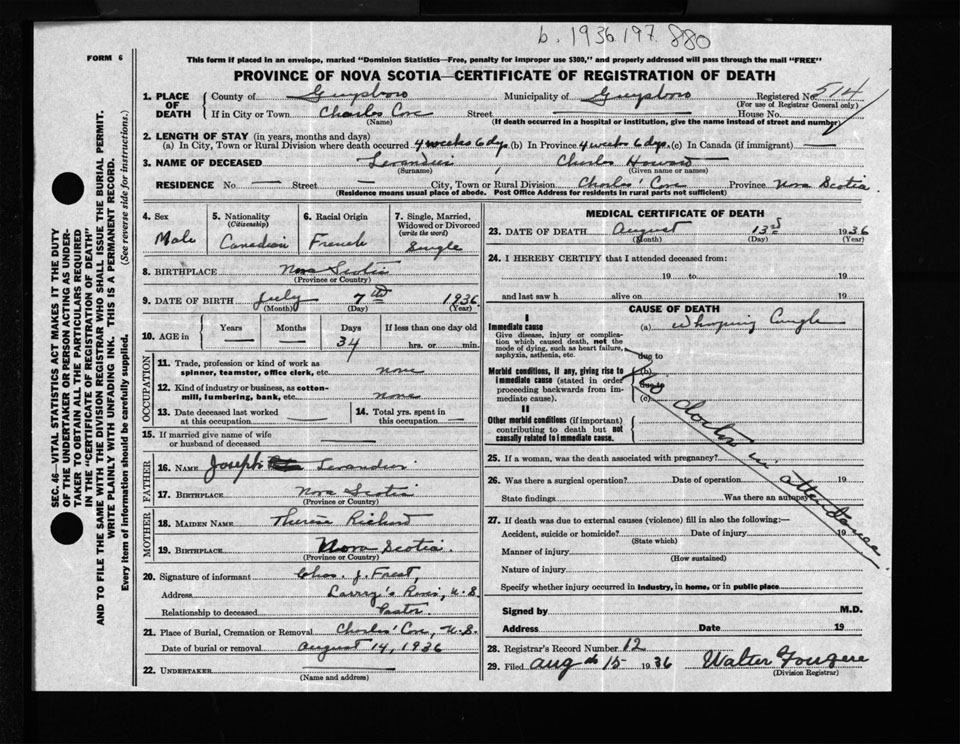 b. 1936.197.880
FORM 6
This form if placed in an envelope, marked "Dominion Statistics—Free, penalty for improper use $300," and properly addressed will pass through the mail "FREE"
PROVINCE OF NOVA SCOTIA—CERTIFICATE OF REGISTRATION OF DEATH
SEC. 46—VITAL STATISTICS ACT MAKES IT THE DUTY
OF THE UNDERTAKER OR PERSON ACTING AS UNDER-
TAKER TO OBTAIN ALL THE PARTICULARS REQUIRED
IN THE "CERTIFICATE OF REGISTRATION OF DEATH"
AND TO FILE THE SAME WITH THE DIVISION REGISTRAR WHO SHALL ISSUE THE BURIAL PERMIT.
WRITE PLAINLY WITH UNFADING INK. THIS IS A PERMANENT RECORD.
Every item of information should be carefully supplied. (See reverse side for instructions.)
1. PLACE OF DEATH County of Guysboro Municipality of Guysboro Registered No. 514
(For use of Registrar General only)
If in City or Town Charles Cove Street House No.
(Name) (If death occurred in a hospital or institution, give the name instead of street and number)
2. LENGTH OF STAY (in years, months and days)
(a) In City, Town or Rural Division where death occurred 4 weeks 6 dys. (b) In Province 4 weeks 6 dys. (c) In Canada (if immigrant)
3. NAME OF DECEASED Charles Howard
(Surname) (Given name or names)
RESIDENCE No Street City, Town or Rural Division Charles' Cove Province Nova Scotia
(Residence means usual place of abode. Post Office Address for residents in rural parts not sufficient)
4. Sex Male
5. Nationality (Citizenship) Canadian
6. Racial Origin French
7. Single, Married, Widowed or Divorced (write the word) Single
8. BIRTHPLACE Nova Scotia
(Province or Country)
9. DATE OF BIRTH July 7th 1936
(Month) (Day) (Year)
10. AGE in Years Months Days 34 If less than one day old hrs. or min.
OCCUPATION
11. Trade, profession or kind of work as spinner, teamster, office clerk, etc. none
12. Kind of industry or business, as cotton-mill, lumbering, bank, etc. none
13. Date deceased last worked at this occupation
14. Total yrs. spent in this occupation
15. If married give name of wife or husband of deceased
FATHER
16. NAME Joseph
17. BIRTHPLACE Nova Scotia
(Province or Country)
MOTHER
18. MAIDEN NAME Therese Richard
19. BIRTHPLACE Nova Scotia.
(Province or Country)
20. Signature of informant Chas. J. Frest,
Address Larry's River, N.S.
Relationship to deceased Pastor
21. Place of Burial, Cremation or Removal Charles' Cove, N.S.
Date of burial or removal August 14, 1936
22. UNDERTAKER
(Name and address)
MEDICAL CERTIFICATE OF DEATH
23. DATE OF DEATH August 13th 1936
(Month) (Day) (Year)
24. I HEREBY CERTIFY that I attended deceased from:
19 to 19
and last saw h alive on 19
CAUSE OF DEATH
I
Immediate cause (a) Whooping Cough
Give disease, injury or complication which caused death, not the mode of dying, such as heart failure, asphyxia, asthenia, etc.
due to
Morbid conditions, if any, giving rise to immediate cause (stated in order proceeding backwards from immediate cause). (b)
due to
(c)
II
Other morbid conditions (if important) contributing to death but not causally related to immediate cause.
doctor in attendance
25. If a woman, was the death associated with pregnancy?
26. Was there a surgical operation? Date of operation 19
State findings Was there an autopsy?
27. If death was due to external causes (violence) fill in also the following:—
Accident, suicide or homicide? Date of injury 19
(State which)
Manner of injury
(How sustained)
Nature of injury
Specify whether injury occurred in industry, in home, or in public place
Signed by M.D.
Address Date 19
28. Registrar's Record Number 12
29. Filed Aug 15 1936 Walter Fougere
(Division Registrar)